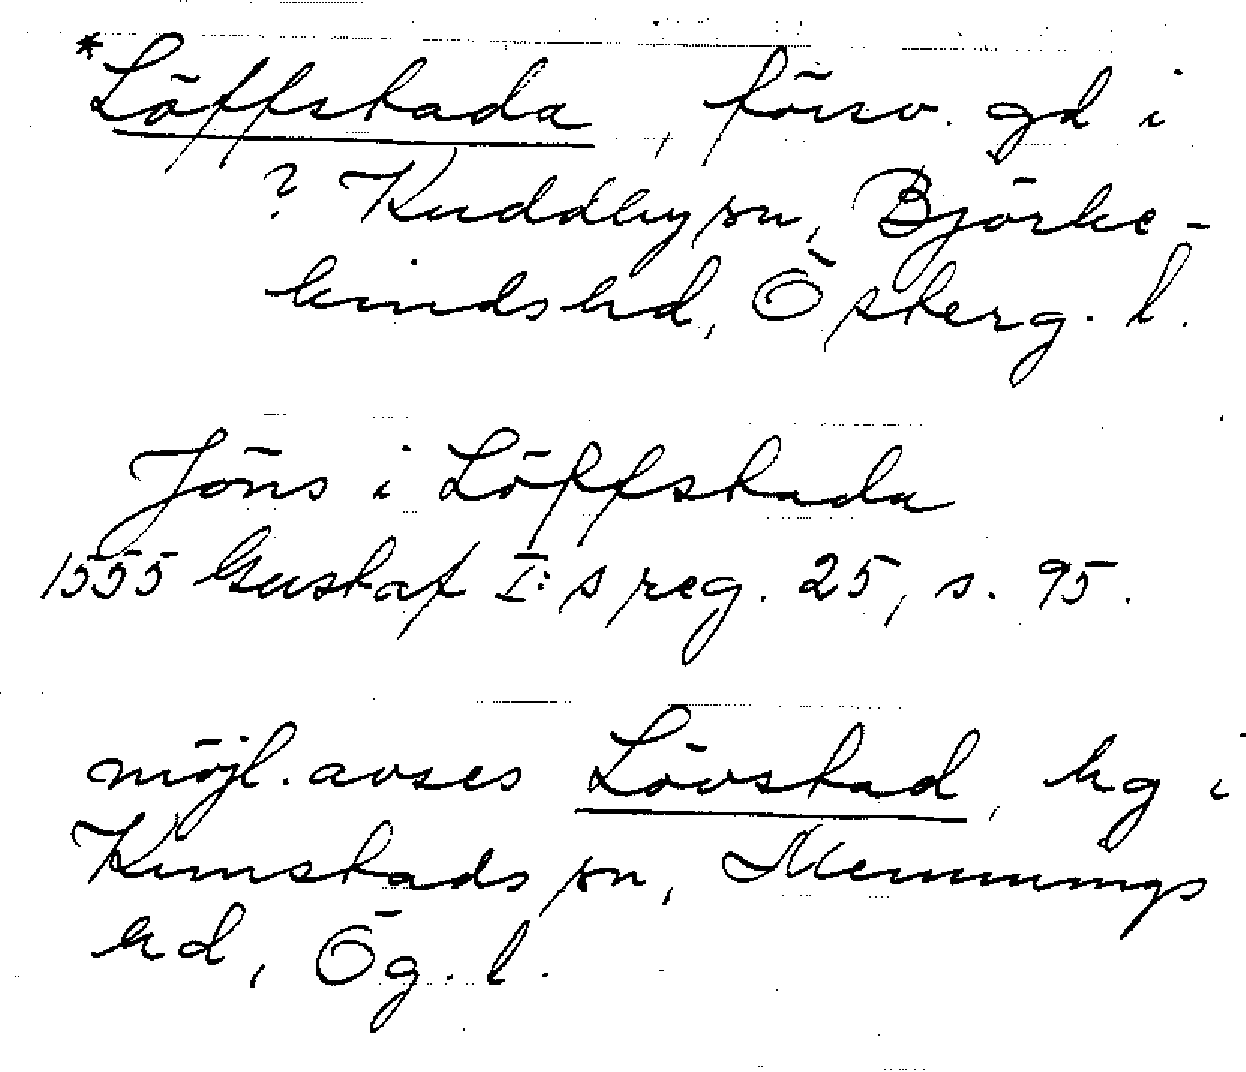 *Löffstada, försv. gd i
? Kuddby sn, Björke-
kinds hd, Österg. l.
Jöns i Löffstada
1555 Gustaf I:s reg. 25, s. 95.
möjl. avses Lövstad, hg i
Kimstads sn, Memmings
hd, Ög. l.